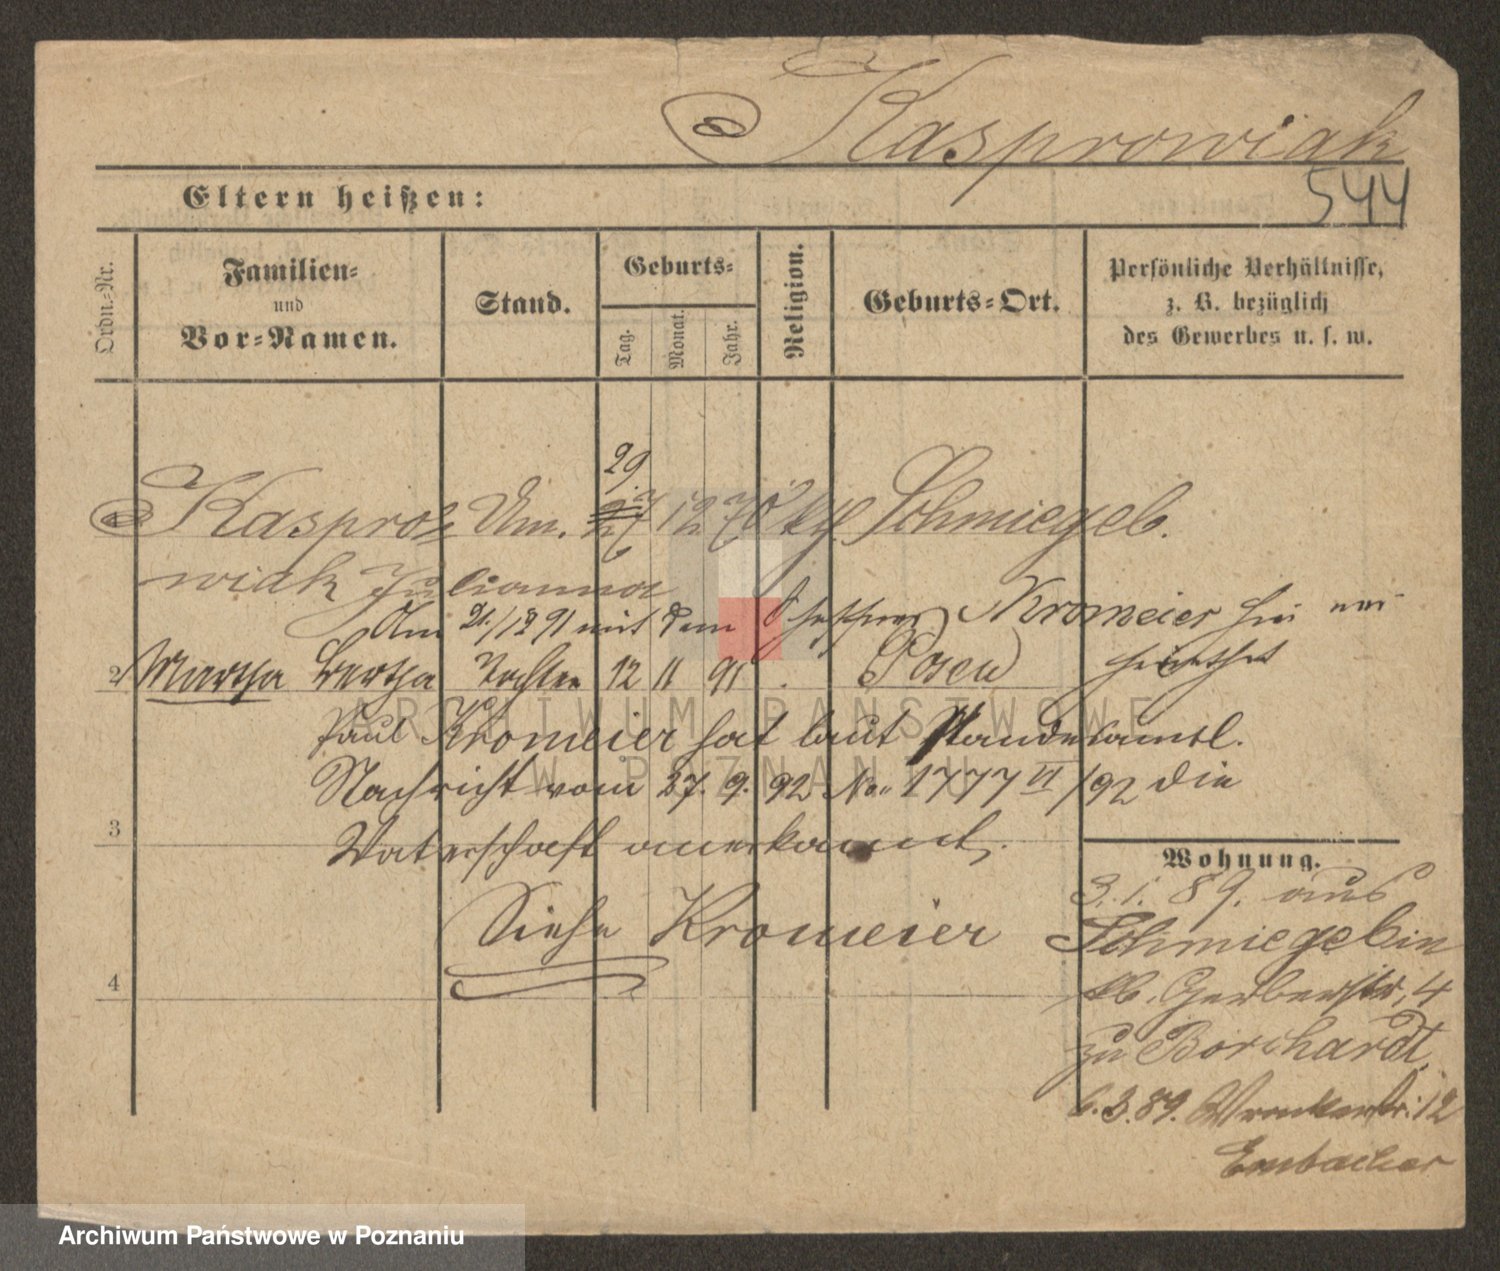 Kasprowiak
544
Eltern heißen:
Ordn.-Nr.
Familien-
und
Vor-Namen.
Stand.
Geburts-
Tag.
Monat.
Jahr.
Religion.
Geburts-Ort.
Persönliche Verhältnisse,
z. B. bezüglich
des Gewerbes u. s. w.
29.
Kaspro- Un. 27 12 70 kg. Schmiegel
wiak Julianna
Am 21./12 91 mit dem Kromeier
2 Martha Bertha Tochter 12 11 91 Posen
Paul Kromeier hat laut Standesamtl.
Nachricht vom 27. 9. 92 No. 1777 VI/92 die
3 Vaterschaft anerkannt.
Siehe Kromeier
4
Wohnung.
3. 1. 89. aus
Schmiegel in
kl. Gerberstr. 4
zu Borchardt.
6. 3. 89. Wronkerstr. 12
Embacher
ARCHIWUM PAŃSTWOWE
W POZNANIU
Archiwum Państwowe w Poznaniu